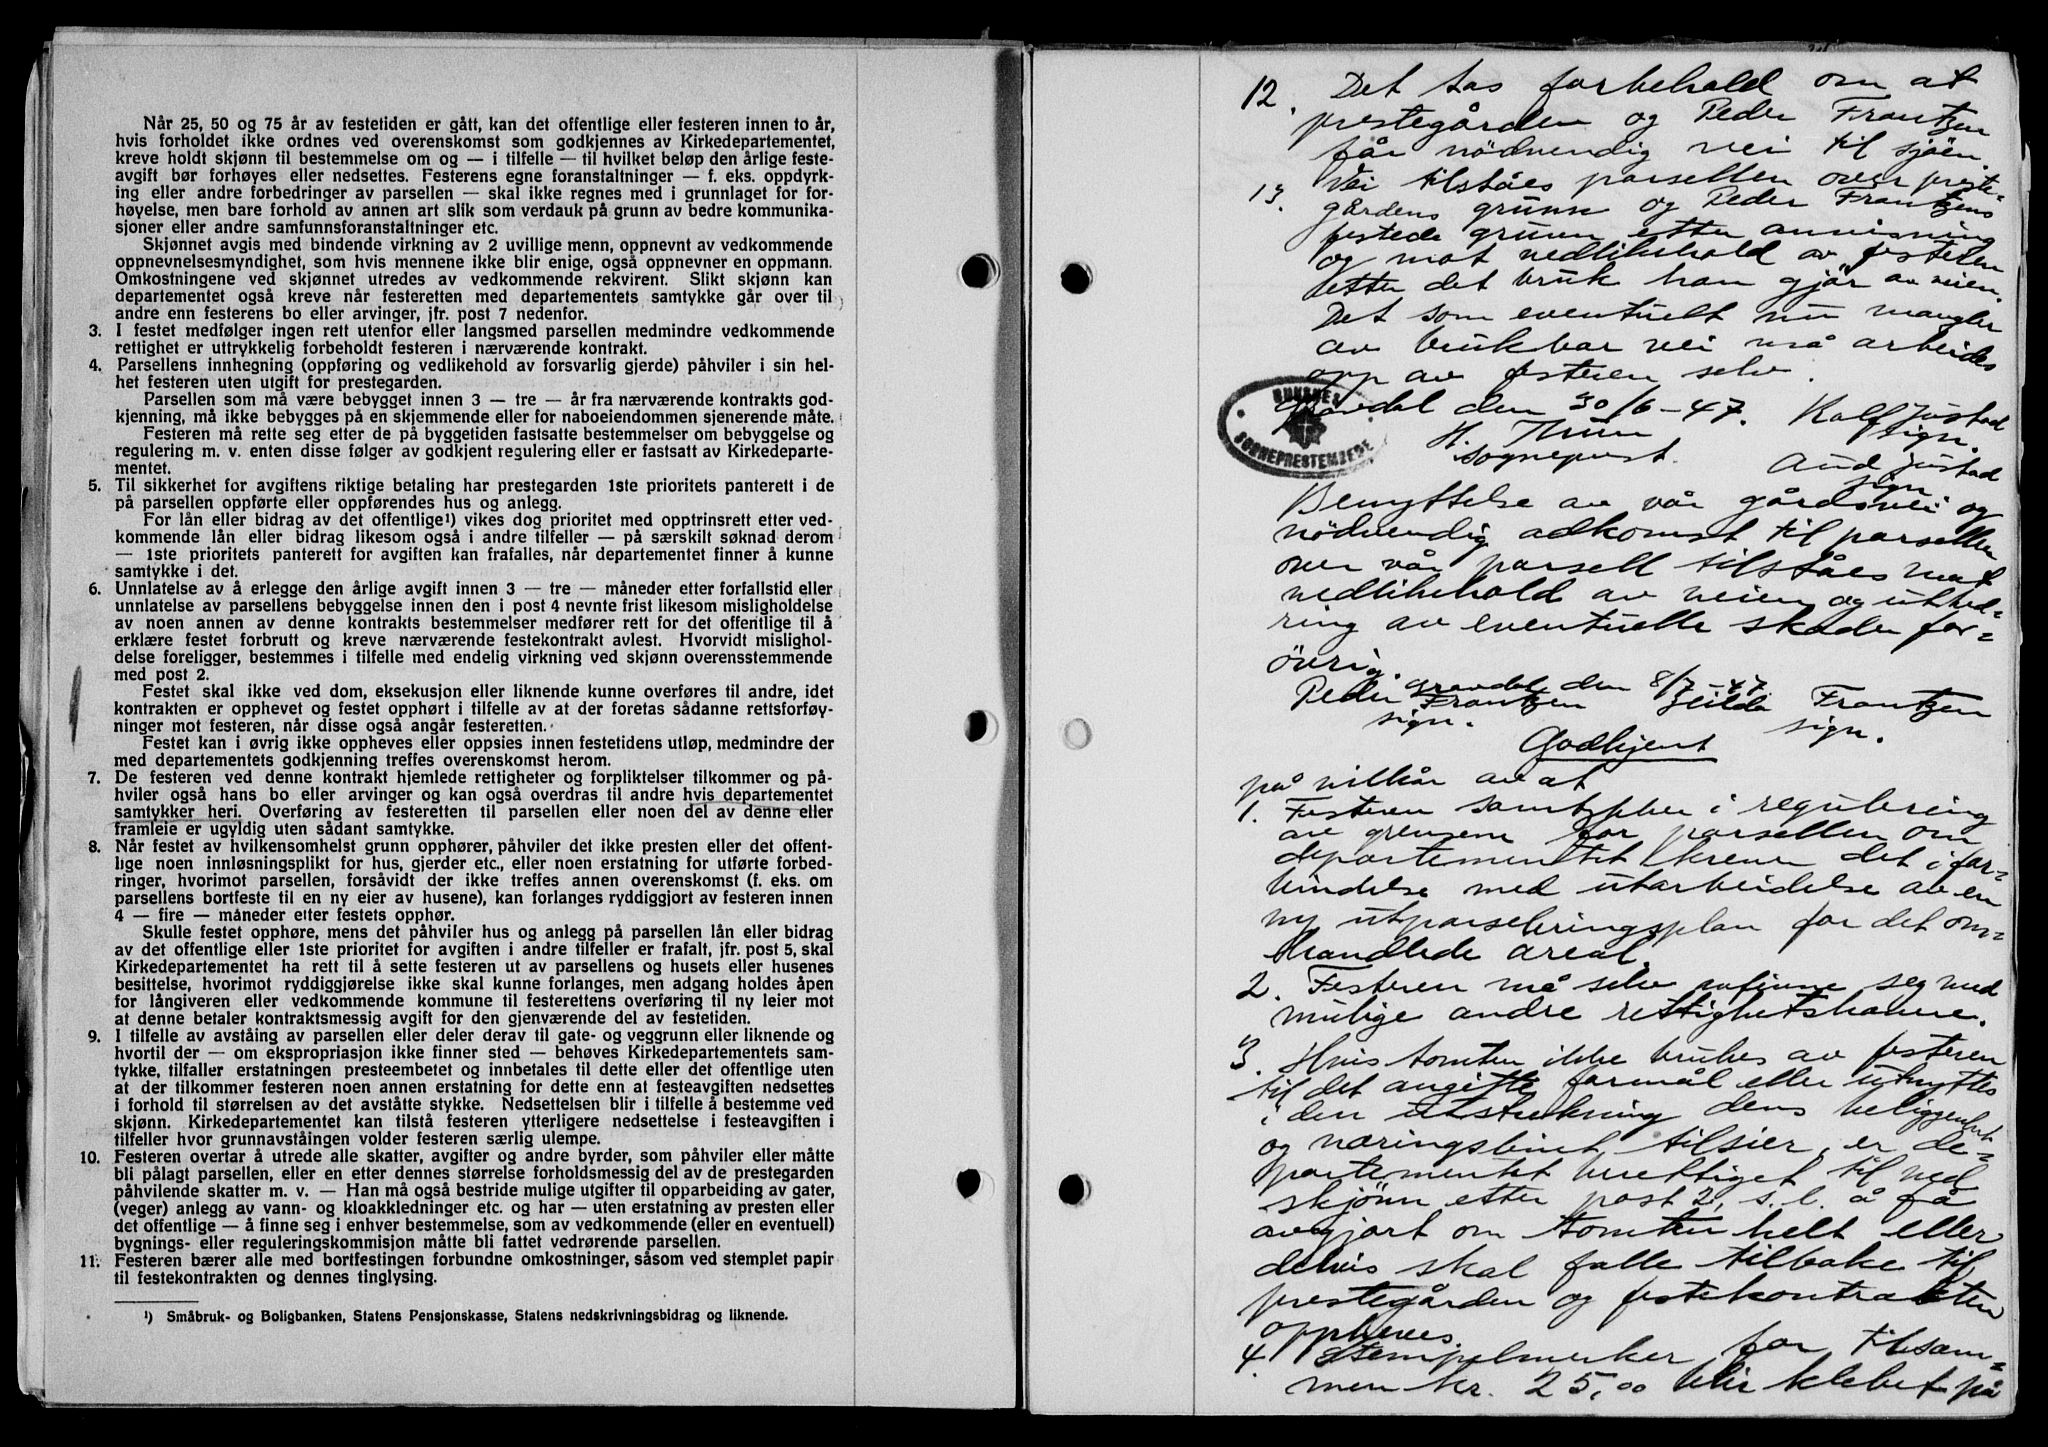 Når 25, 50 og 75 år av festetiden er gått, kan det offentlige eller festeren innen to år,
hvis forholdet ikke ordnes ved overenskomst som godkjennes av Kirkedepartementet,
kreve holdt skjønn til bestemmelse om og — i tilfelle — til hvilket beløp den årlige feste-
avgift bør forhøyes eller nedsettes. Festerens egne foranstaltninger — f. eks. oppdyrk-
ing eller andre forbedringer av parsellen — skal ikke regnes med i grunnlaget for for-
høyelse, men bare forhold av annen art slik som verdauk på grunn av bedre kommunika-
sjoner eller andre samfunnsforanstaltninger etc.
Skjønnet avgis med bindende virkning av 2 uvillige menn, oppnevnt av vedkommende
oppnevnelsesmyndighet, som hvis mennene ikke blir enige, også oppnevner en oppmann.
Omkostningene ved skjønnet utredes av vedkommende rekvirent. Slikt skjønn kan
departementet også kreve når festeretten med departementets samtykke går over til
andre enn festerens bo eller arvinger, jfr. post 7 nedenfor.
3. I festet medfølger ingen rett utenfor eller langsmed parsellen medmindre vedkommende
rettighet er uttrykkelig forbeholdt festeren i nærværende kontrakt.
4. Parsellens innhegning (oppføring og vedlikehold av forsvarlig gjerde) påhviler i sin hel-
het festeren uten utgift for prestegarden.
Parsellen som må være bebygget innen 3 — tre — år fra nærværende kontrakts god-
kjenning, må ikke bebygges på en skjemmende eller for naboeiendommen sjenerende måte.
Festeren må rette seg etter de på byggetiden fastsatte bestemmelser om bebyggelse og
regulering m. v. enten disse følger av godkjent regulering eller er fastsatt av Kirkedeparte-
mentet.
5. Til sikkerhet for avgiftens riktige betaling har prestegarden 1ste prioritets panterett i de
på parsellen oppførte eller oppførendes hus og anlegg.
For lån eller bidrag av det offentlige¹) vikes dog prioritet med opptrinsrett etter ved-
kommende lån eller bidrag likesom også i andre tilfeller — på særskilt søknad derom
— 1ste prioritets panterett for avgiften kan frafalles, når departementet finner å kunne
samtykke i det.
6. Unnlatelse av å erlegge den årlige avgift innen 3 — tre — måneder etter forfallstid eller
unnlatelse av parsellens bebyggelse innen den i post 4 nevnte frist likesom misligholdelse
av noen annen av denne kontrakts bestemmelser medfører rett for det offentlige til å
erklære festet forbrutt og kreve nærværende festekontrakt avlest. Hvorvidt mislighol-
delse foreligger, bestemmes i tilfelle med endelig virkning ved skjønn overensstemmende
med post 2.
Festet skal ikke ved dom, eksekusjon eller liknende kunne overføres til andre, idet
kontrakten er opphevet og festet opphørt i tilfelle av at der foretas sådanne rettsforføy-
ninger mot festeren, når disse også angår festeretten.
Festet kan i øvrig ikke oppheves eller oppsies innen festetidens utløp, medmindre der
med departementets godkjenning treffes overenskomst herom.
7. De festeren ved denne kontrakt hjemlede rettigheter og forpliktelser tilkommer og på-
hviler også hans bo eller arvinger og kan også overdras til andre hvis departementet
samtykker heri. Overføring av festeretten til parsellen eller noen del av denne eller
framleie er ugyldig uten sådant samtykke.
8. Når festet av hvilkensomhelst grunn opphører, påhviler det ikke presten eller det offent-
lige noen innløsningsplikt for hus, gjerder etc., eller noen erstatning for utførte forbed-
ringer, hvorimot parsellen, forsåvidt der ikke treffes annen overenskomst (f. eks. om
parsellens bortfeste til en ny eier av husene), kan forlanges ryddiggjort av festeren innen
4 — fire — måneder etter festets opphør.
Skulle festet opphøre, mens det påhviler hus og anlegg på parsellen lån eller bidrag
av det offentlige eller 1ste prioritet for avgiften i andre tilfeller er frafalt, jfr. post 5, skal
Kirkedepartementet ha rett til å sette festeren ut av parsellens og husets eller husenes
besittelse, hvorimot ryddiggjørelse ikke skal kunne forlanges, men adgang holdes åpen
for långiveren eller vedkommende kommune til festerettens overføring til ny leier mot
at denne betaler kontraktsmessig avgift for den gjenværende del av festetiden.
9. I tilfelle av avståing av parsellen eller deler derav til gate- og veggrunn eller liknende og
hvortil der — om ekspropriasjon ikke finner sted — behøves Kirkedepartementets sam-
tykke, tilfaller erstatningen presteembetet og innbetales til dette eller det offentlige uten
at der tilkommer festeren noen annen erstatning for dette enn at festeavgiften nedsettes
i forhold til størrelsen av det avståtte stykke. Nedsettelsen blir i tilfelle å bestemme ved
skjønn. Kirkedepartementet kan tilstå festeren ytterligere nedsettelse i festeavgiften i
tilfeller hvor grunnavståingen volder festeren særlig ulempe.
10. Festeren overtar å utrede alle skatter, avgifter og andre byrder, som påhviler eller måtte
bli pålagt parsellen, eller en etter dennes størrelse forholdsmessig del av de prestegarden
påhvilende skatter m. v. — Han må også bestride mulige utgifter til opparbeiding av gater,
(veger) anlegg av vann- og kloakkledninger etc. og har — uten erstatning av presten eller
det offentlige — å finne seg i enhver bestemmelse, som av vedkommende (eller en eventuell)
bygnings- eller reguleringskommisjon måtte bli fattet vedrørende parsellen.
11. Festeren bærer alle med bortfestingen forbundne omkostninger, såsom ved stemplet papir
til festekontrakten og dennes tinglysing.
¹) Småbruk- og Boligbanken, Statens Pensjonskasse, Statens nedskrivningsbidrag og liknende.
12. Det tas forbehold om at
prestegården og Peder Frantzen
får nödvendig vei til sjöen.
13. Vei tilståes parsellen over preste-
gårdens grunn og Peder Frantzens
festede grunn etter anvisning
og mot vedlikehold av festeren
etter det bruk han gjör av veien.
Det som eventuelt nu mangler
av brukbar vei må arbeides
opp av festeren selv.
Gravdal den 30/6-47. Rolf Justad
sign.
H. Thun
Sogneprest. Aud Justad
sign
BUKSNES
SOGNEPRESTEMBEDE
Benyttelse av vår gårdsvei og
nödvendig adkomst til parsellen
over vår parsell tilståes mot
vedlikehold av veien og utbed-
ring av eventuelle skader for-
övrig.
Gravdal den 8/7-47.
Peder Frantzen Hilda Frantzen
sign. sign.
Godkjent
på vilkår av at
1. Festeren samtykker i regulering
av grensene for parsellen om
departementet krever det i for-
bindelse med utarbeidelse av en
ny utparselleringsplan for det om-
handlede areal.
2. Festeren må selv avfinne seg med
mulige andre rettighetshavere.
3. Hvis tomten ikke brukes av festeren
til det angitte formål eller utnyttes
i den utstrekning dens beliggenhet
og næringslivet tilsier, er de-
partementet berettiget til ved
skjönn etter post 2, s.l. å få
avgjort om tomten helt eller
delvis skal falle tilbake til
prestegården og festekontrakten
oppheves.
4. Stempelmerker for tilsam-
men kr. 25,00 blir klebet på